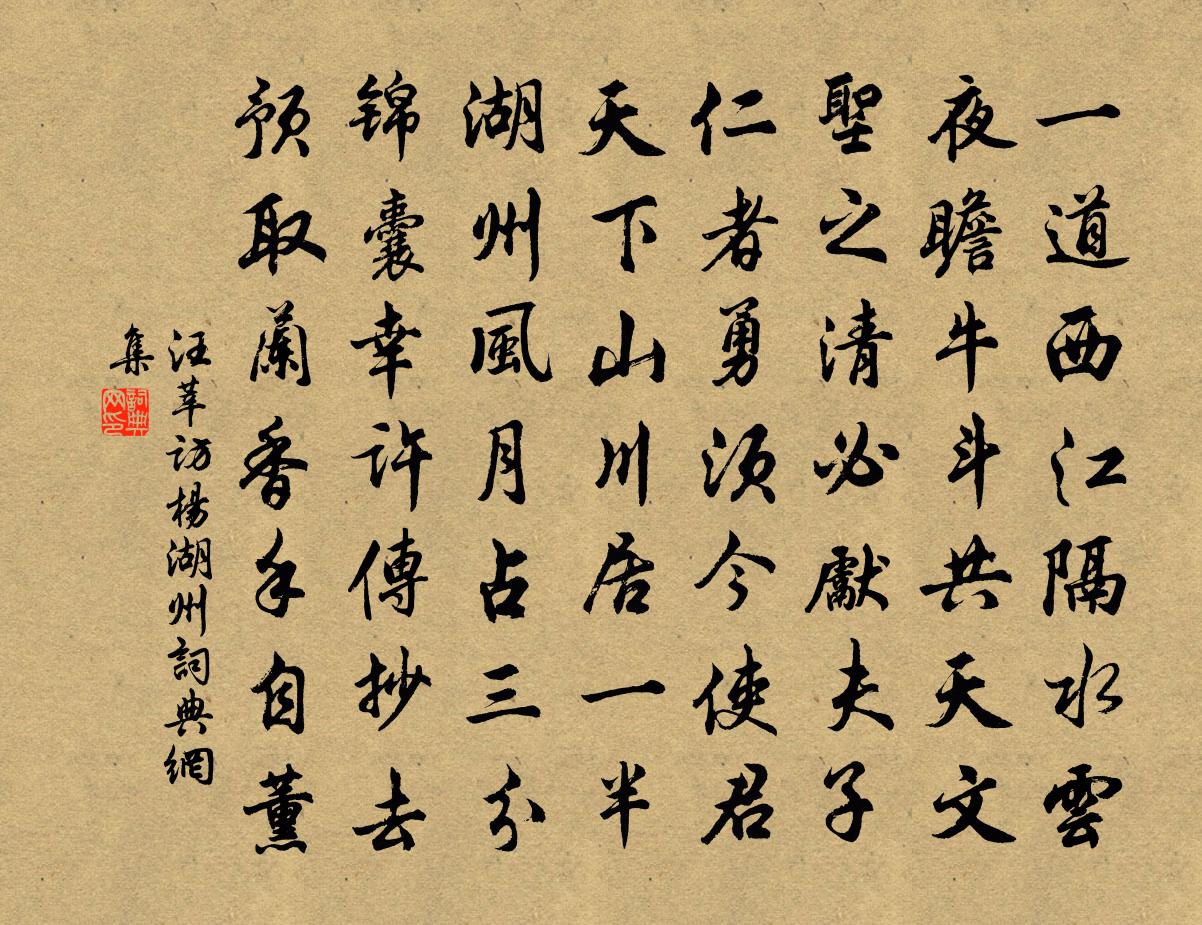 一道西江隔水雲
夜瞻牛斗共天文
聖之清必獻夫子
仁者勇須今使君
天下山川居一半
湖州風月占三分
锦囊幸許傳抄去
预取蘭香手自薰
汪莘訪楊湖州詞典網
集
詞典
网印